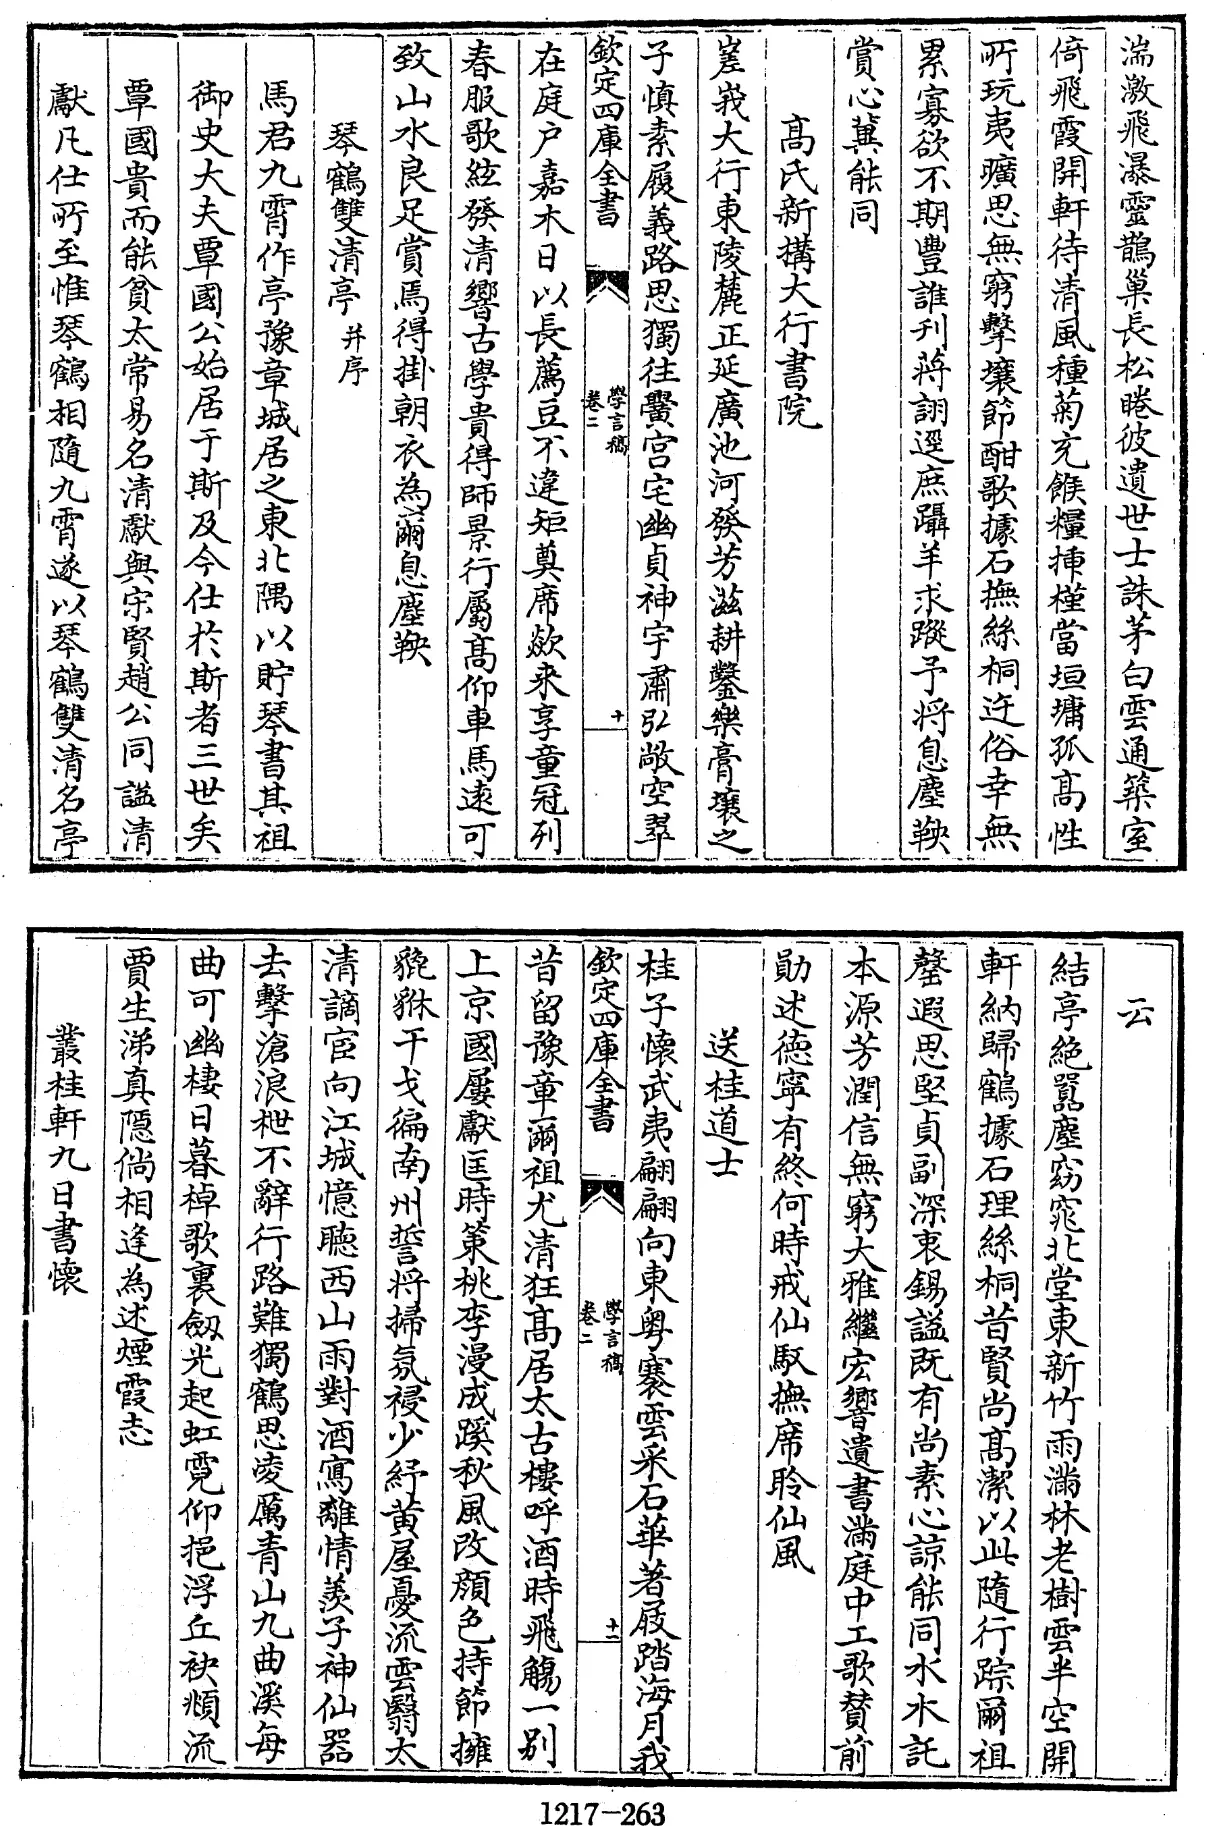 湍激飛瀑靈鵲巢長松睠彼遺世士誅茅白雲通築室
倚飛霞開軒待清風種菊充餱糧揷槿當垣墉孤高性
所玩夷曠思無窮擊壤節酣歌據石撫絲桐迕俗幸無
累寡欲不期豐誰刋蔣詡逕庶躡羊求蹤予将息塵鞅
賞心冀能同
高氏新構大行書院
嵳峩大行東陵麓正延廣池河發芳滋耕鑿樂膏壤之
子慎素履義路思獨往黌宮宅幽貞神宇肅弘敞空翠
欽定四庫全書
學言稿
卷二
十
在庭户嘉木日以長薦豆不違矩奠席歘来享童冠列
春服歌絃發清響古學貴得師景行屬高仰車馬逺可
致山水良足賞焉得掛朝衣為爾息塵鞅
琴鶴雙清亭并序
馬君九霄作亭豫章城居之東北隅以貯琴書其祖
御史大夫覃國公始居于斯及今仕扵斯者三世矣
覃國貴而能貧太常易名清獻與宋賢趙公同諡清
獻凡仕所至惟琴鶴相隨九霄遂以琴鶴雙清名亭
云
結亭絶囂塵窈窕北堂東新竹雨滿林老樹雲半空開
軒納歸鶴據石理絲桐昔賢尚高潔以此隨行踪爾祖
罄遐思堅貞副深衷錫諡既有尚素心諒能同水木託
本源芳潤信無窮大雅繼宏響遺書滿庭中工歌賛前
勛述德寧有終何時戒仙馭撫席聆仙風
送桂道士
桂子懐武夷翩翩向東粤褰雲采石華著屐踏海月我
欽定四庫全書
學言稿
卷二
十一
昔留豫章爾祖尤清狂高居太古樓呼酒時飛觴一别
上京國屢獻匡時策桃李漫成蹊秋風改顔色持節擁
貔貅干戈徧南州誓将掃氛祲少紓黄屋憂流雲翳太
清謫宦向江城憶聽西山雨對酒寫離情羨子神仙器
去擊滄浪枻不辭行路難獨鶴思凌厲青山九曲溪每
曲可幽棲日暮棹歌裏劔光起虹霓仰挹浮丘袂頫流
賈生涕真隱倘相逢為述煙霞志
叢桂軒九日書懐
1217-263